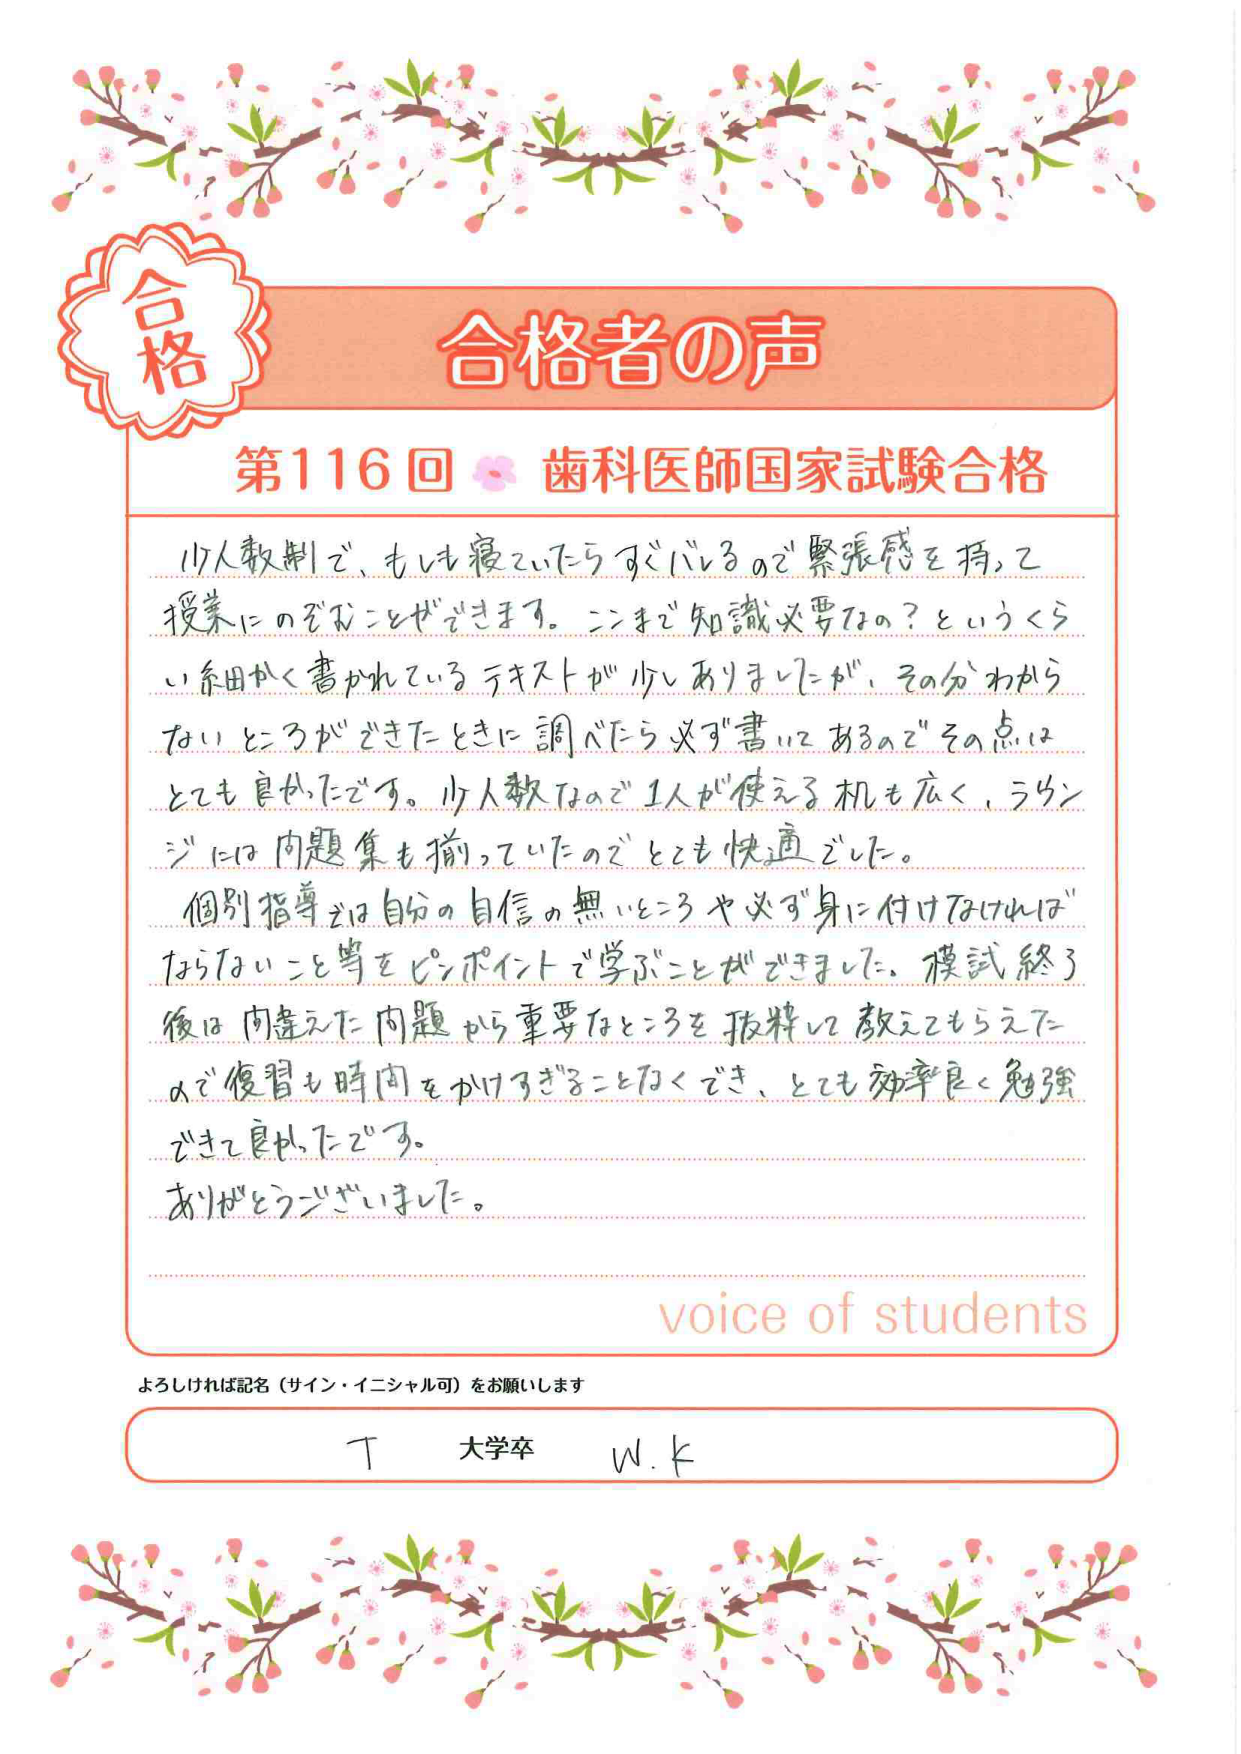 合格
合格者の声
第116回 歯科医師国家試験合格
少人数制で、もしも寝ていたらすぐバレるので緊張感を持って
授業にのぞむことができます。ここまで知識必要なの？というくら
い細かく書かれているテキストが少しありましたが、その分わから
ないところができたときに調べたら必ず書いてあるのでその点は
とても良かったです。少人数なので1人が使える机も広く、ラウン
ジには問題集も揃っていたのでとても快適でした。
個別指導では自分の自信の無いところや必ず身に付けなければ
ならないこと等をピンポイントで学ぶことができました。模試終了
後は間違えた問題から重要なところを抜粋して教えてもらえた
ので復習も時間をかけすぎることなくでき、とても効率良く勉強
できて良かったです。
ありがとうございました。
voice of students
よろしければ記名（サイン・イニシャル可）をお願いします
T 大学卒 W.K